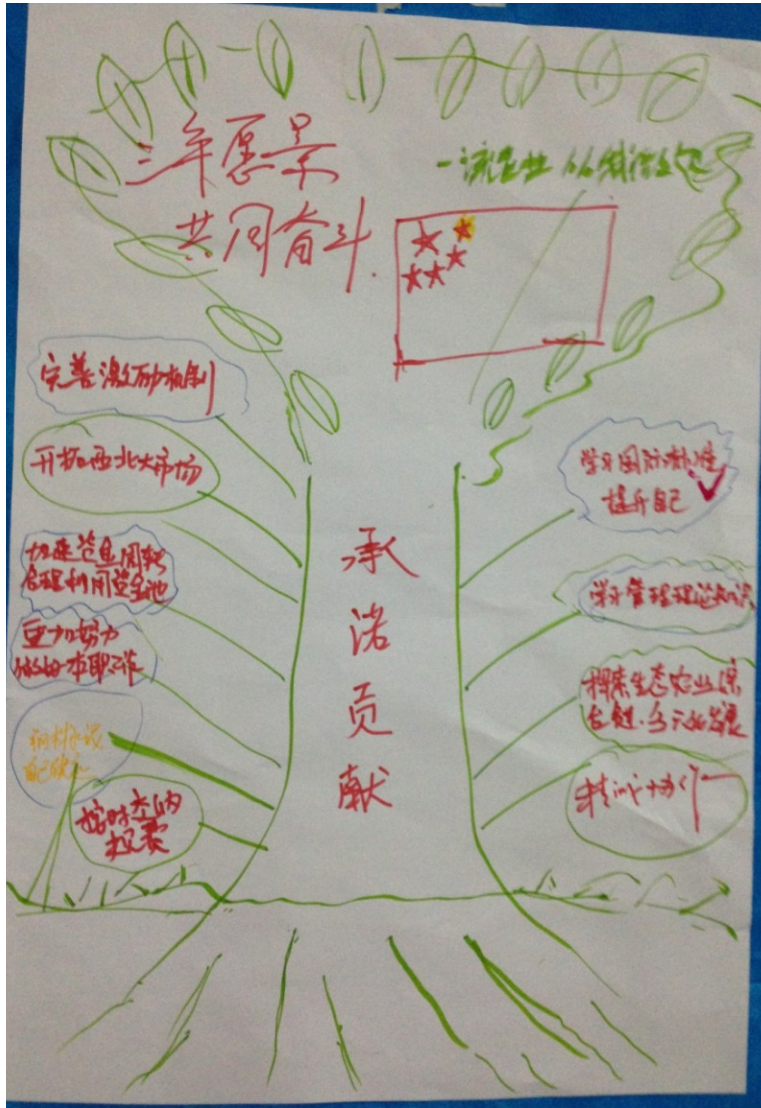 三年愿景
共同奋斗.
完善激励机制
开拓西北大市场
加速资金周转
合理利用资金池
更加努力
做好本职工作
按时交纳
投资
承诺贡献
学习国际标准
提升自己
学习管理理论知识
探索生态农业综
合链.多元化发展
精诚协作